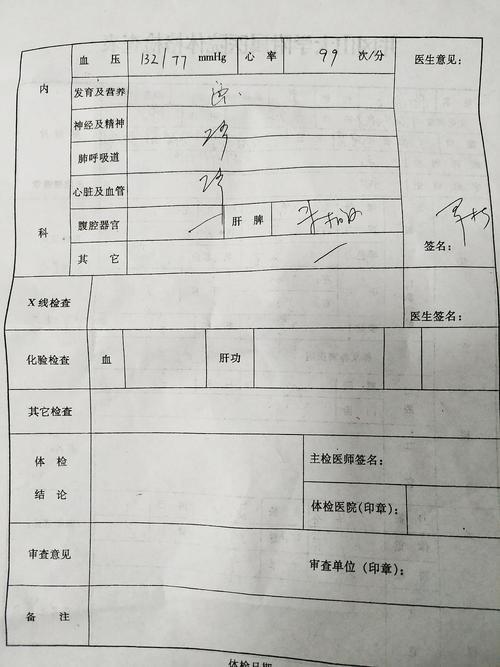 内科
血压 132/77 mmHg 心率 99 次/分 医生意见:
发育及营养
神经及精神
肺呼吸道
心脏及血管
腹腔器官 一 肝脾 未扪及
签名:
其它 一
X线检查 医生签名:
化验检查 血 肝功
其它检查
体检结论 主检医师签名:
体检医院(印章):
审查意见 审查单位(印章):
备注
体检日期